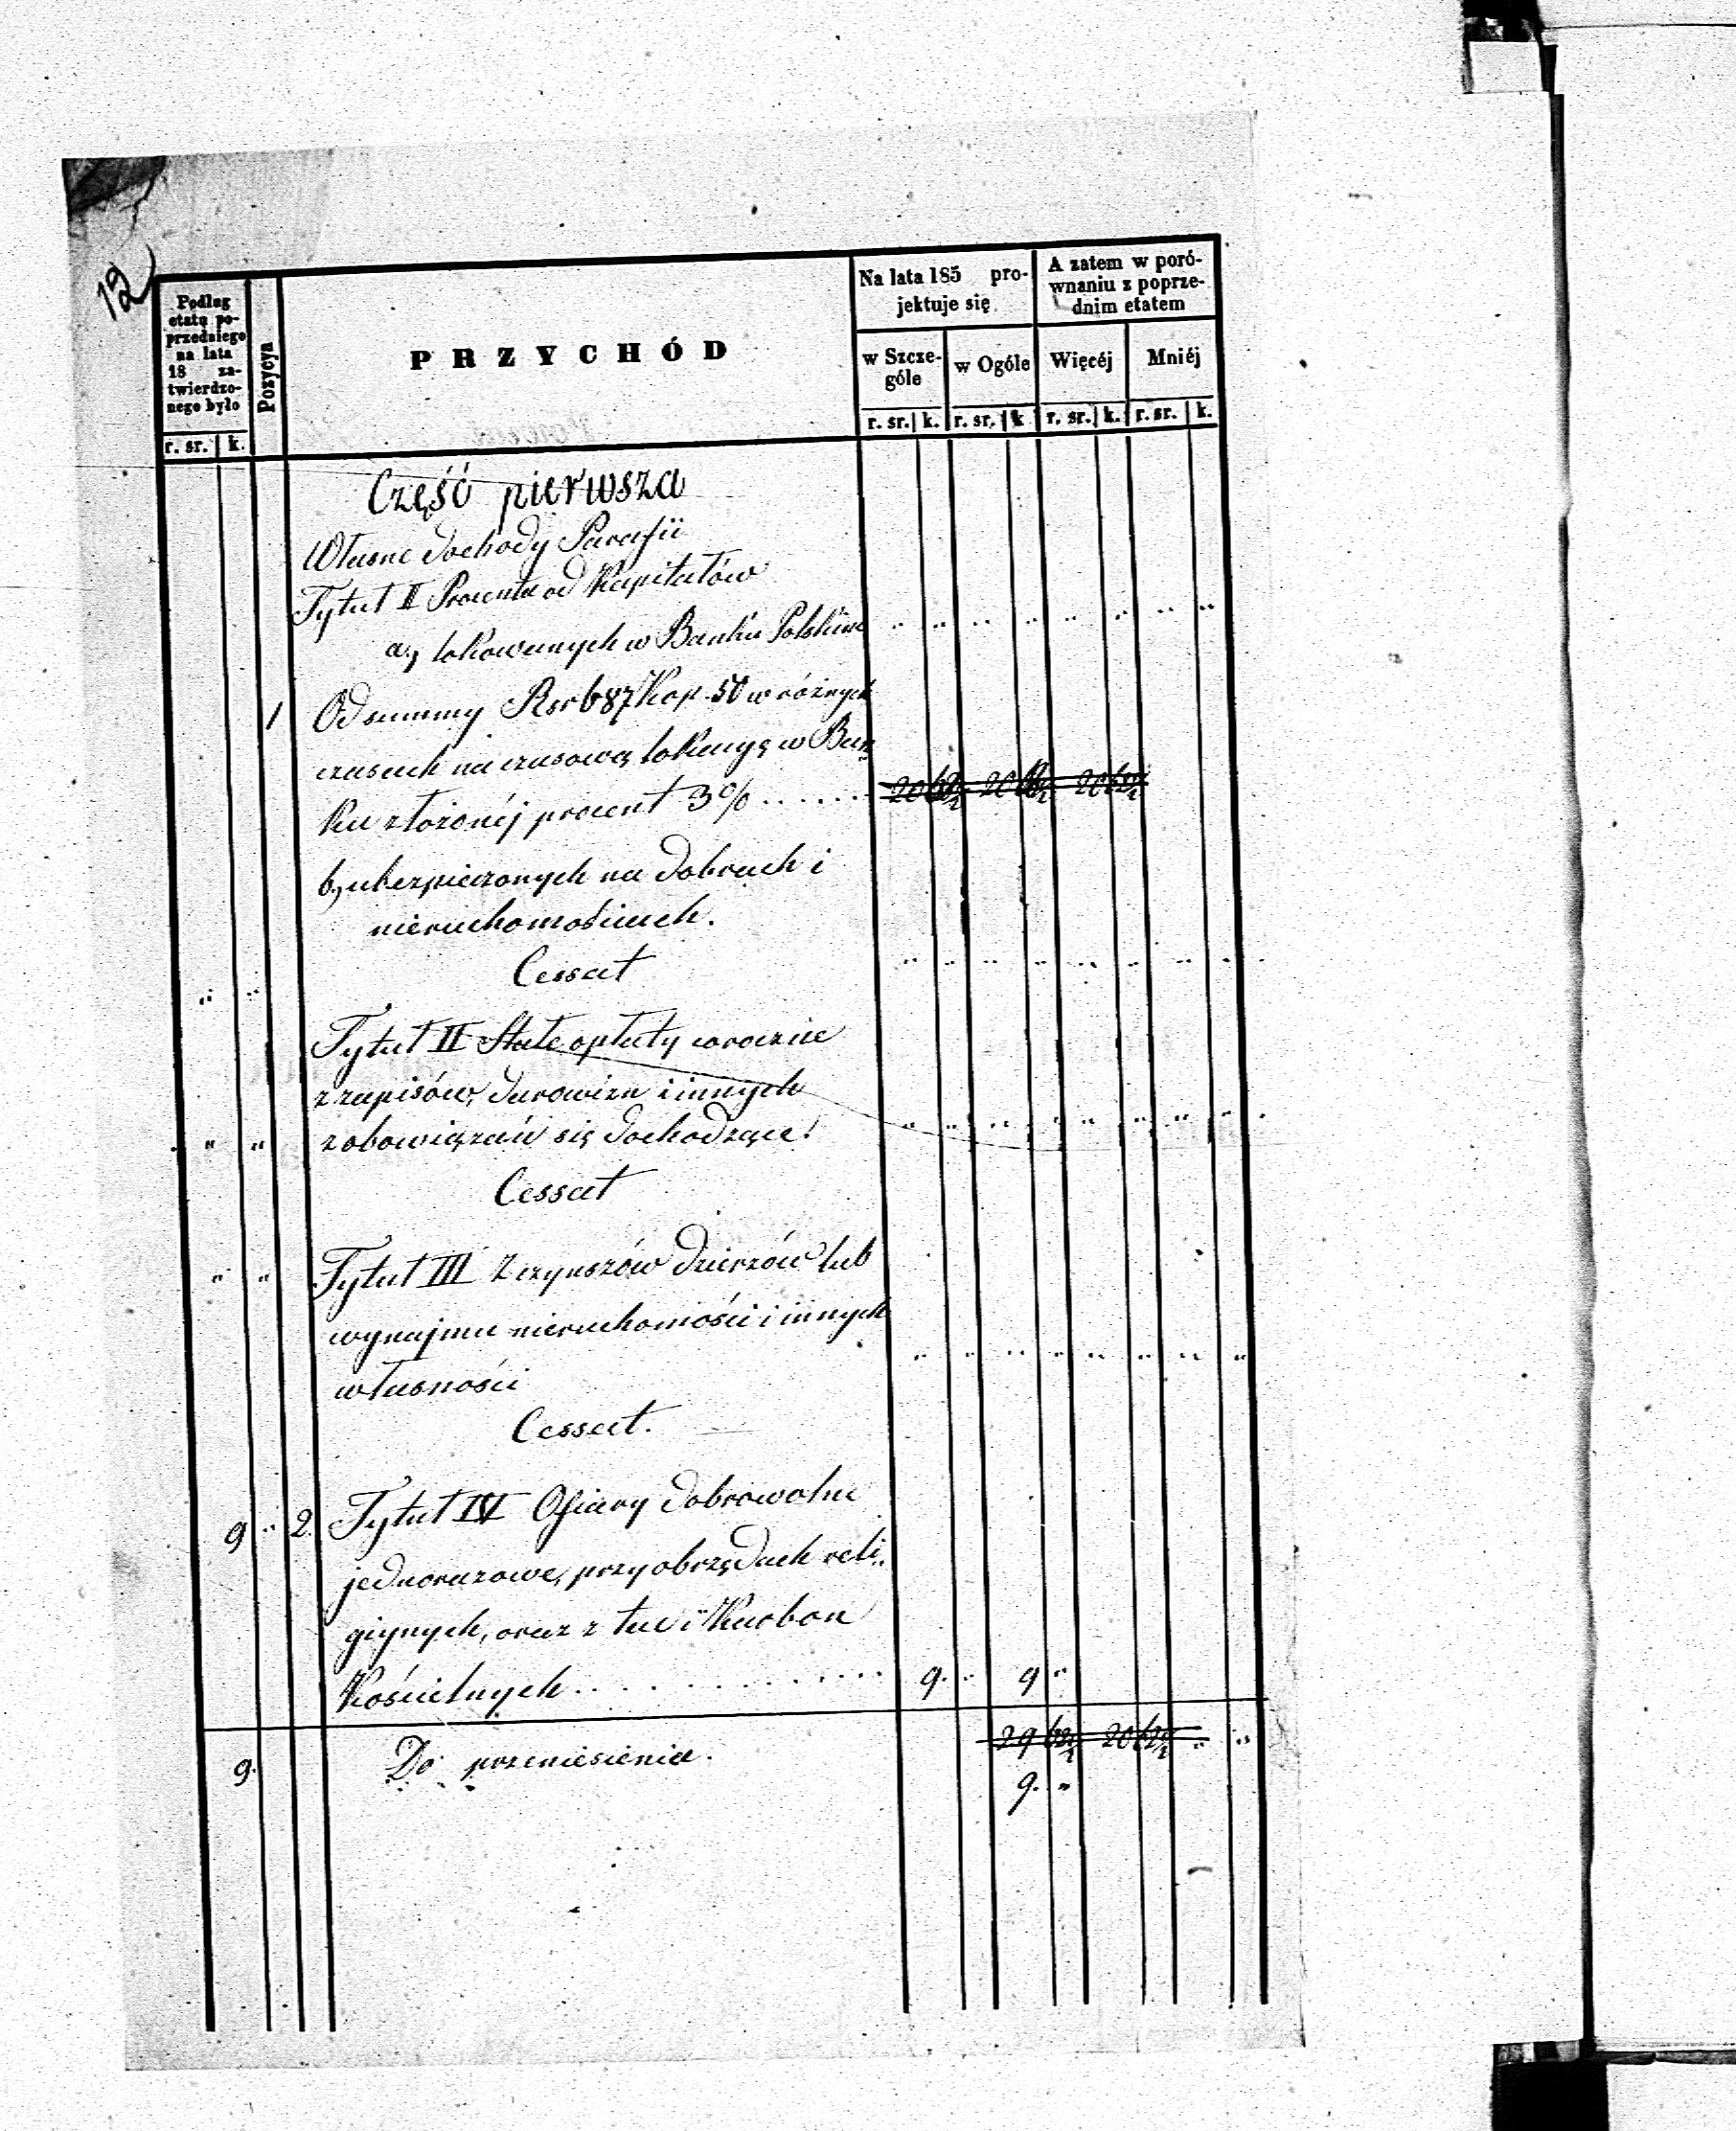 12
Podług
etatu po-
przedniego
na lata
18 za-
twierdzo-
nego było
r. sr. k.
Pozycya
PRZYCHÓD
Na lata 185 pro-
jektuje się
w Szcze-
góle
w Ogóle
r. sr. k. r. sr. k
A zatem w poró-
wnaniu z poprze-
dnim etatem
Więcéj Mniéj
r. sr. k. r. sr. k.
Część pierwsza
Własne dochody Parafii
Tytuł II Procenta od Kapitałów
a., lokowanych w Banku Polskim
1 Od summy Rsr 687 Kop. 50 w różnych
czasach na czasową lokacyę w Ban„
ku złożonéj procent 3% . . . . . . 20 62½ 20 62½ 20 62½
b., ubezpieczonych na dobrach i
nieruchomościach.
Cessat
Tytuł II Stałe opłaty corocznie
z zapisów, darowizn i innych
„ „ zobowiązań się dochodzące!
Cessat
„ „ Tytuł III Z czynszów dzierżów lub
wynajmu nieruchomości i innych
własności
Cessat.
9 „ 2. Tytuł IV Ofiary dobrowolne
jednorazowe, przy obrzędach reli„
gijnych, oraz z tac i Karbon
Kościelnych . . . . . . . . . . 9. „ 9 „
9. Do przeniesienia. 29 62½ 20 62½ „ „
9. „